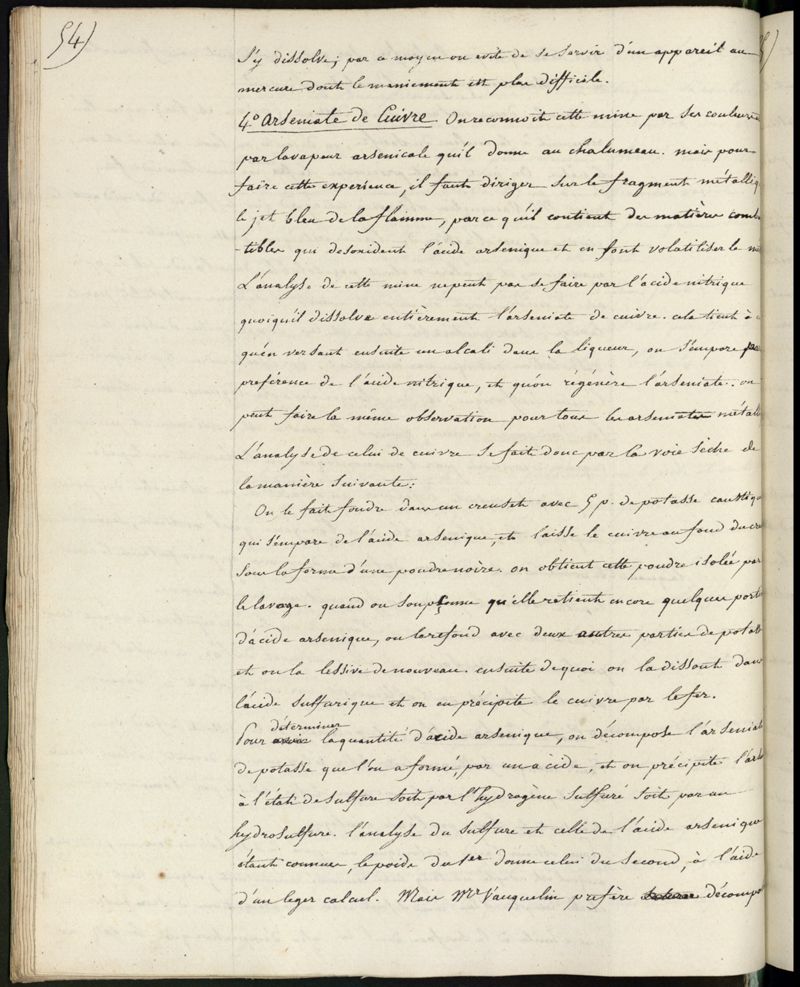 54)
s'y dissolve; par ce moyen on evite de se servir d'un appareil au
mercure dont le maniement est plus difficile.
4.° Arseniate de Cuivre On reconnoit cette mine par ses couleurs
par la vapeur arsenicale qu'il donne au chalumeau. mais pour
faire cette experience, il faut diriger sur le fragment métalliq
le jet bleu de la flamme, parce qu'il contient des matières comb
-tibles qui desoxident l'acide arsenique et en font volatiliser le m
L'analyse de cette mine ne peut pas se faire par l'acide nitrique
quoiqu'il dissolve entièrement l'arseniate de cuivre. cela tient à
qu'en versant ensuite un alcali dans la liqueur, on s'empare par
preférence de l'acide nitrique, et qu'on régénère l'arseniate. on
peut faire la même observation pour tous les arseniates métall
L'analyse de celui de cuivre se fait donc par la voie sèche de
la manière suivante:
On le fait fondre dans un creuset avec 5 p. de potasse caustiq
qui s'empare de l'acide arsenique, et laisse le cuivre au fond du cr
sous la forme d'une poudre noire. on obtient cette poudre isolée par
le lavage. quand on soupçonne qu'elle retient encore quelques port
d'acide arsenique, on la refond avec deux autres parties de potass
et on la lessive de nouveau. ensuite de quoi on la dissout dans
l'acide sulfurique et on en précipite le cuivre par le fer.
Pour déterminer la quantité d'acide arsenique, on décompose l'arseniat
de potasse que l'on a formé, par un acide, et on précipite l'ars
à l'état de sulfure soit par l'hydrogène sulfuré soit par un
hydrosulfure. l'analyse du sulfure et celle de l'acide arsenique
étant connues, le poids du 1er donne celui du second, à l'aide
d'un leger calcul. Mais Mr Vauquelin préfère décompo